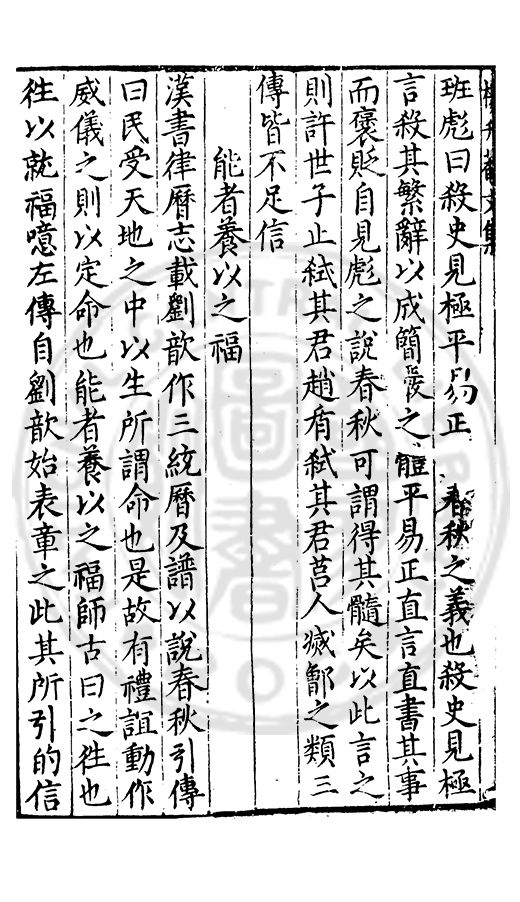 班彪曰殺史見極平易正 春秋之義也殺史見極
言殺其繁辭以成簡嚴之體平易正直言直書其事
而褒貶自見彪之說春秋可謂得其髓矣以此言之
則許世子止弑其君趙盾弑其君莒人滅鄫之類三
傳皆不足信
能者養以之福
漢書律曆志載劉歆作三統曆及譜以說春秋引傳
曰民受天地之中以生所謂命也是故有禮誼動作
威儀之則以定命也能者養以之福師古曰之徃也
徃以就福噫左傳自劉歆始表章之此其所引的信